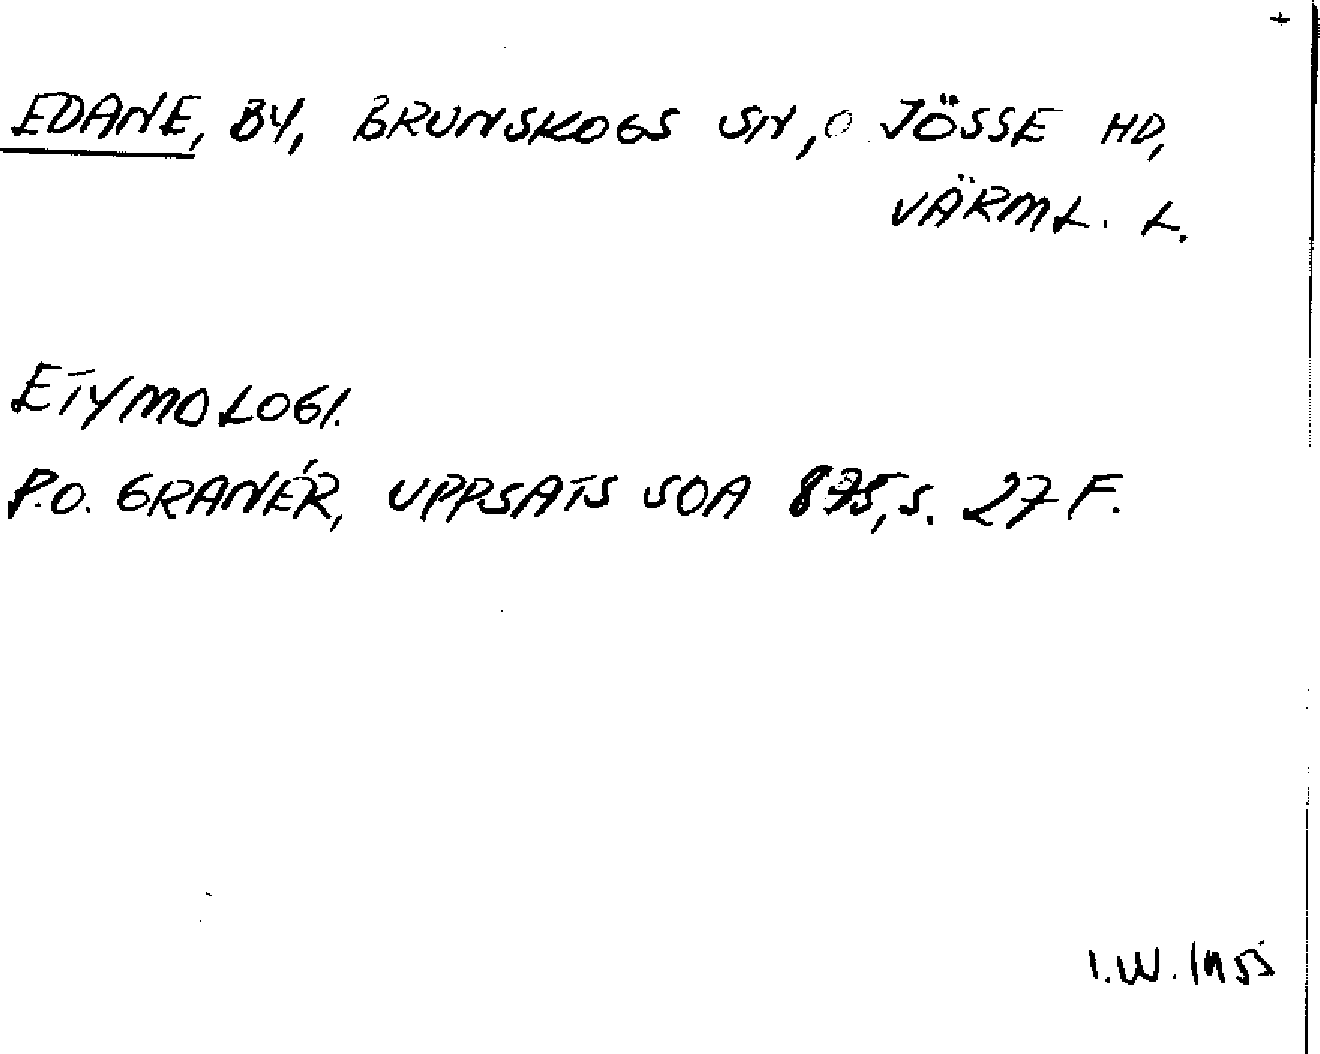 +
EDANE, BY, BRUNSKOGS SN, JÖSSE HD,
VÄRML. L.
ETYMOLOGI.
P.O. GRANÉR, UPPSATS SOA 875, S. 27 F.
I.W.